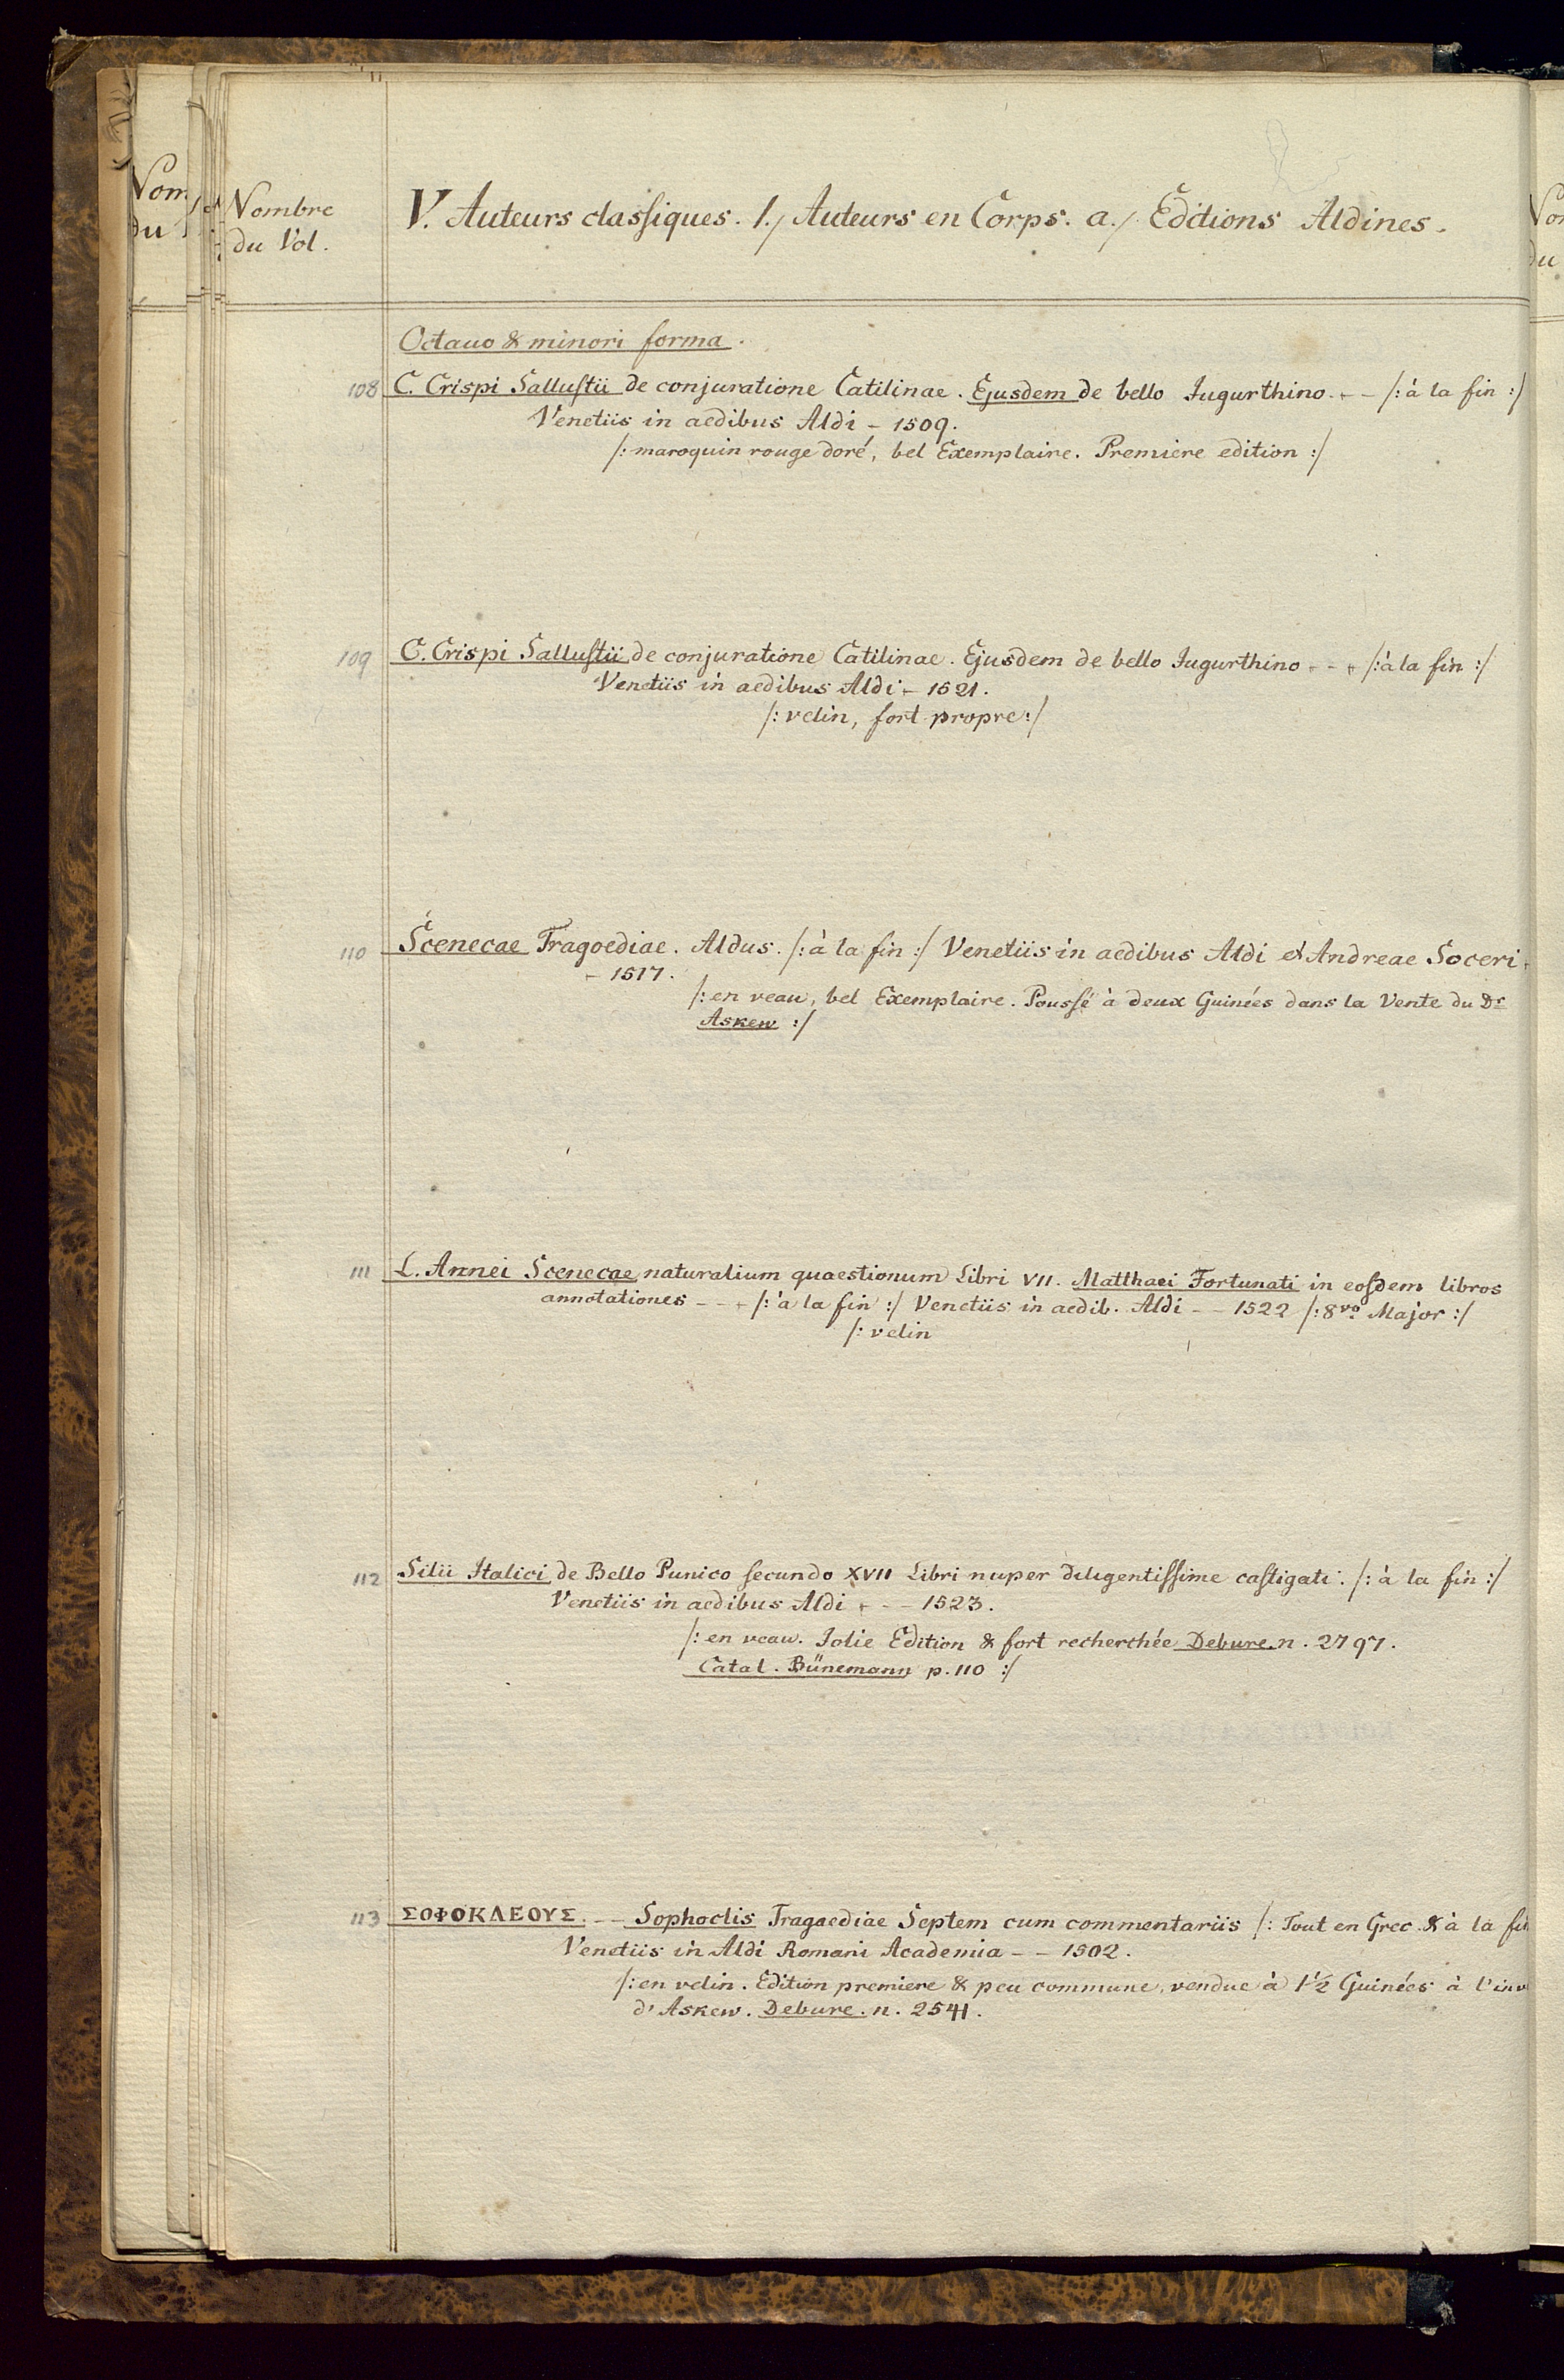 Nombre
du Vol.
V. Auteurs classiques. 1./ Auteurs en Corps. a./ Editions Aldines.
Octauo & minori forma.
108 C. Crispi Sallustii de conjuratione Catilinae. Ejusdem de bello Iugurthino. - - /: à la fin :/
Venetiis in aedibus Aldi - 1509.
/: maroquin rouge doré, bel Exemplaire. Premiere edition :/
109 C. Crispi Sallustii de conjuratione Catilinae. Ejusdem de bello Iugurthino - - - /: à la fin :/
Venetiis in aedibus Aldi - 1521.
/: velin, fort propre :/
110 Scenecae Tragoediae. Aldus. /: à la fin :/ Venetiis in aedibus Aldi et Andreae Soceri -
- 1517.
/: en veau, bel Exemplaire. Poussé à deux Guinées dans la Vente du Dr
Askew :/
111 L. Annei Scenecae naturalium quaestionum Libri VII. Matthaei Fortunati in eosdem libros
annotationes - - - /: à la fin :/ Venetiis in aedib. Aldi - - 1522 /: 8vo Major :/
/: velin
112 Silii Italici de Bello Punico secundo XVII Libri nuper diligentissime castigati. /: à la fin :/
Venetiis in aedibus Aldi - - - 1523.
/: en veau. Jolie Edition & fort recherchée Debure. n. 2797.
Catal. Bünemann p. 110 :/
113 ΣΟΦΟΚΛΕΟΥΣ. - - Sophoclis Tragaediae Septem cum commentariis /: Tout en Grec. & à la fin
Venetiis in Aldi Romani Academia - - 1502.
/: en velin. Edition premiere & peu commune, vendue à 1 1/2 Guinées à l'inv
d'Askew. Debure. n. 2541.